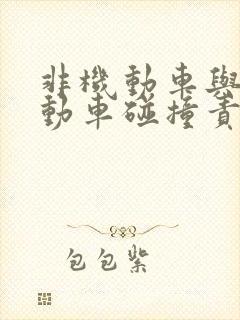 非機動車與
動車碰撞責
包包紫